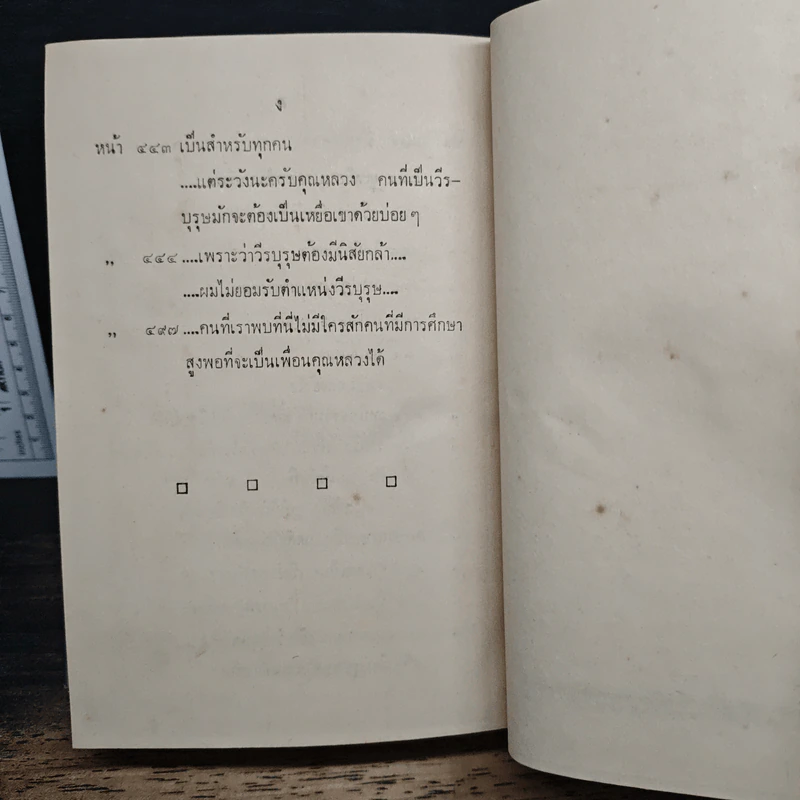 ง
หน้า ๔๔๓ เป็นสำหรับทุกคน
....แต่ระวังนะครับคุณหลวง คนที่เป็นวีร-
บุรุษมักจะต้องเป็นเหยื่อเขาด้วยบ่อย ๆ
,, ๔๔๔ ....เพราะว่าวีรบุรุษต้องมีนิสัยกล้า....
....ผมไม่ยอมรับตำแหน่งวีรบุรุษ....
,, ๔๙๗ ....คนที่เราพบที่นี่ไม่มีใครสักคนที่มีการศึกษา
สูงพอที่จะเป็นเพื่อนคุณหลวงได้